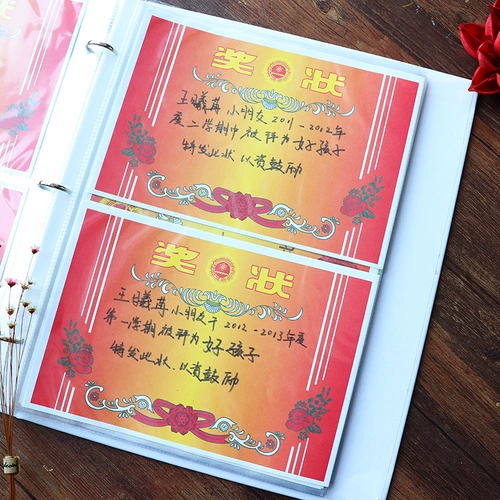 奖状
王曦苒 小朋友 2011-2012年
度二学期中被评为好孩子
特发此状 以资鼓励
奖状
王曦苒小朋友于2012-2013年度
第一学期被评为好孩子
特发此状、以资鼓励